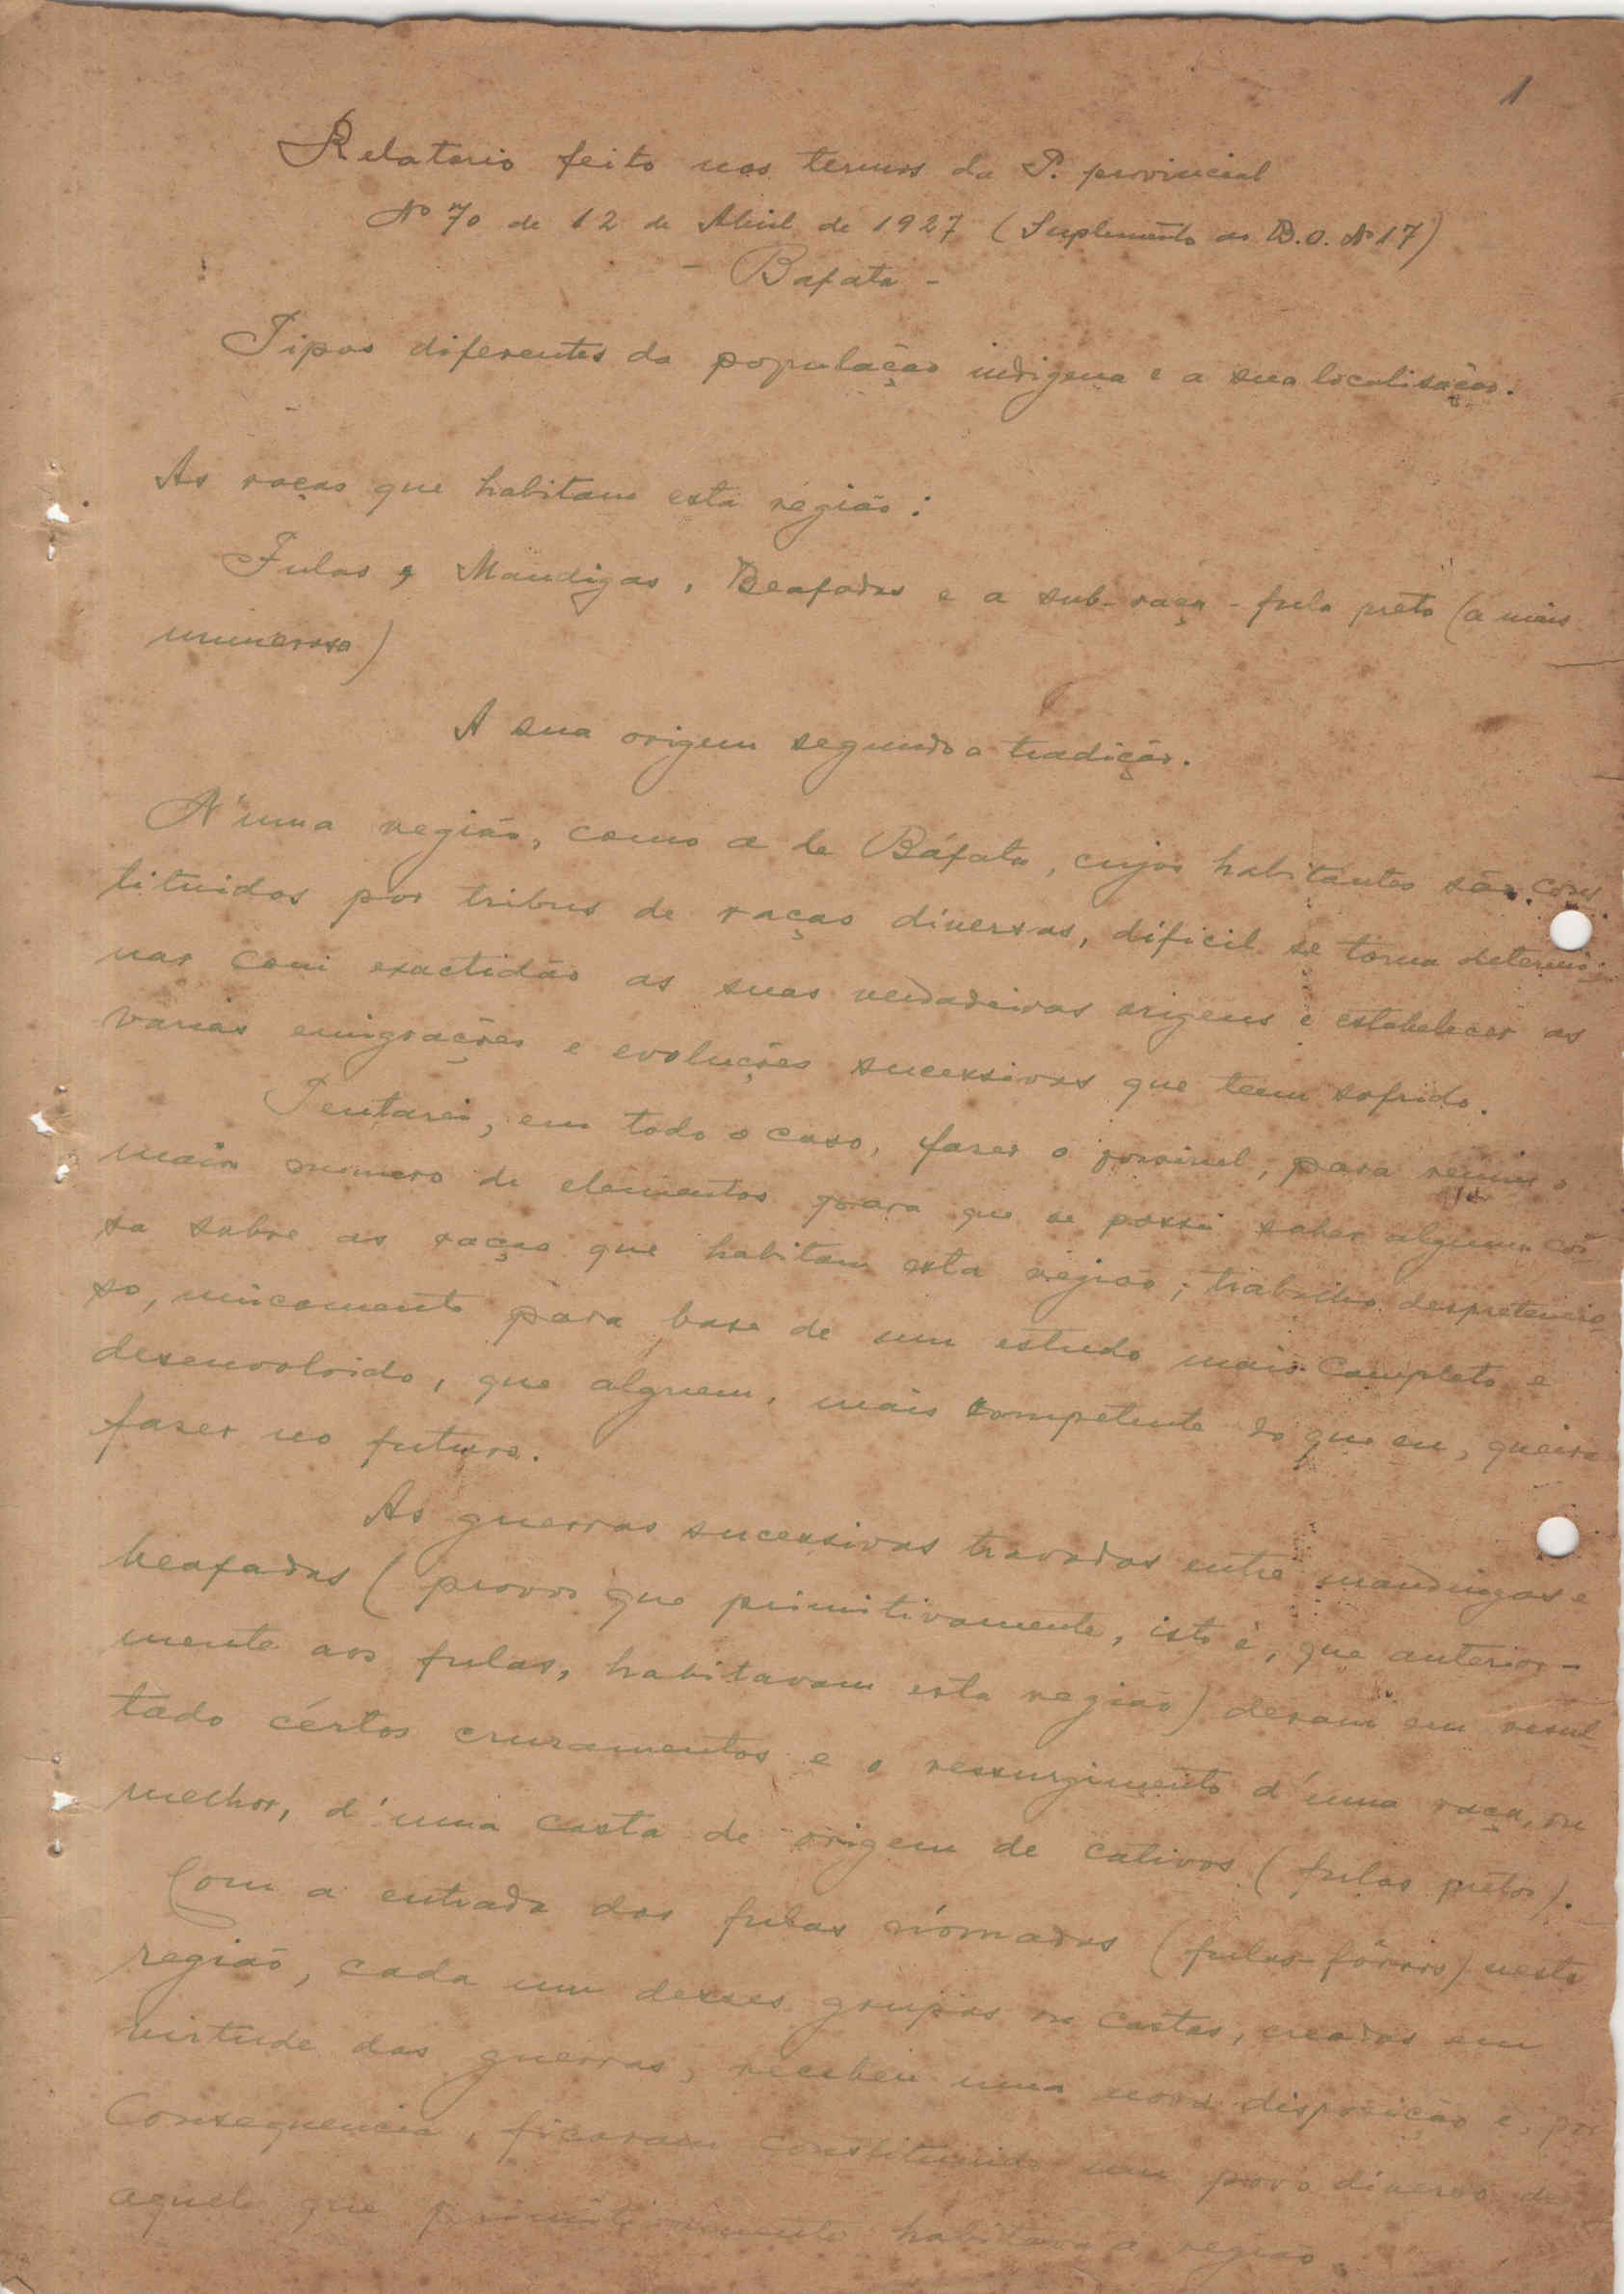 1
Relatorio feito nos termos da P. provincial
Nº 70 de 12 de Abril de 1927 (Suplemento ao B.O. Nº 17)
- Bafata -
Tipos diferentes da população indigena e a sua localisação.
As raças que habitam esta região:
Fulas, Mandigas, Beafadas e a sub-raça - fula preto (a mais
numerosa)
A sua origem segundo a tradição.
N'uma região, como a de Báfata, cujos habitantes são cons
tituidos por tribus de raças diversas, dificil se torna determi-
nar com exactidão as suas verdadeiras origens e estabelecer as
varias emigrações e evoluções sucessivas que teem sofrido.
Tentarei, em todo o caso, faser o possivel, para reunir o
maior numero de elementos para que se possa saber alguma coi-
sa sobre as raças que habitam esta região; trabalho despretencio-
so, unicamente para base de um estudo mais completo e
desenvolvido, que alguem, mais competente do que eu, queira
faser no futuro.
As guerras sucessivas travadas entre mandingas e
beafadas (povos que primitivamente, isto é, que anterior-
mente aos fulas, habitavam esta região) deram em resul-
tado cértos crusamentos e o ressurgimento d'uma raça, ou
melhor, d'uma casta de origem de cativos (fulas pretos).
Com a entrada dos fulas nómadas (fulas-fôrros) nesta
região, cada um desses grupos ou castas, creados em
virtude das guerras, recebeu uma nova disposição e, por
consequencia, ficaram constituindo um povo diverso de
aquele que primitivamente habitava a região.